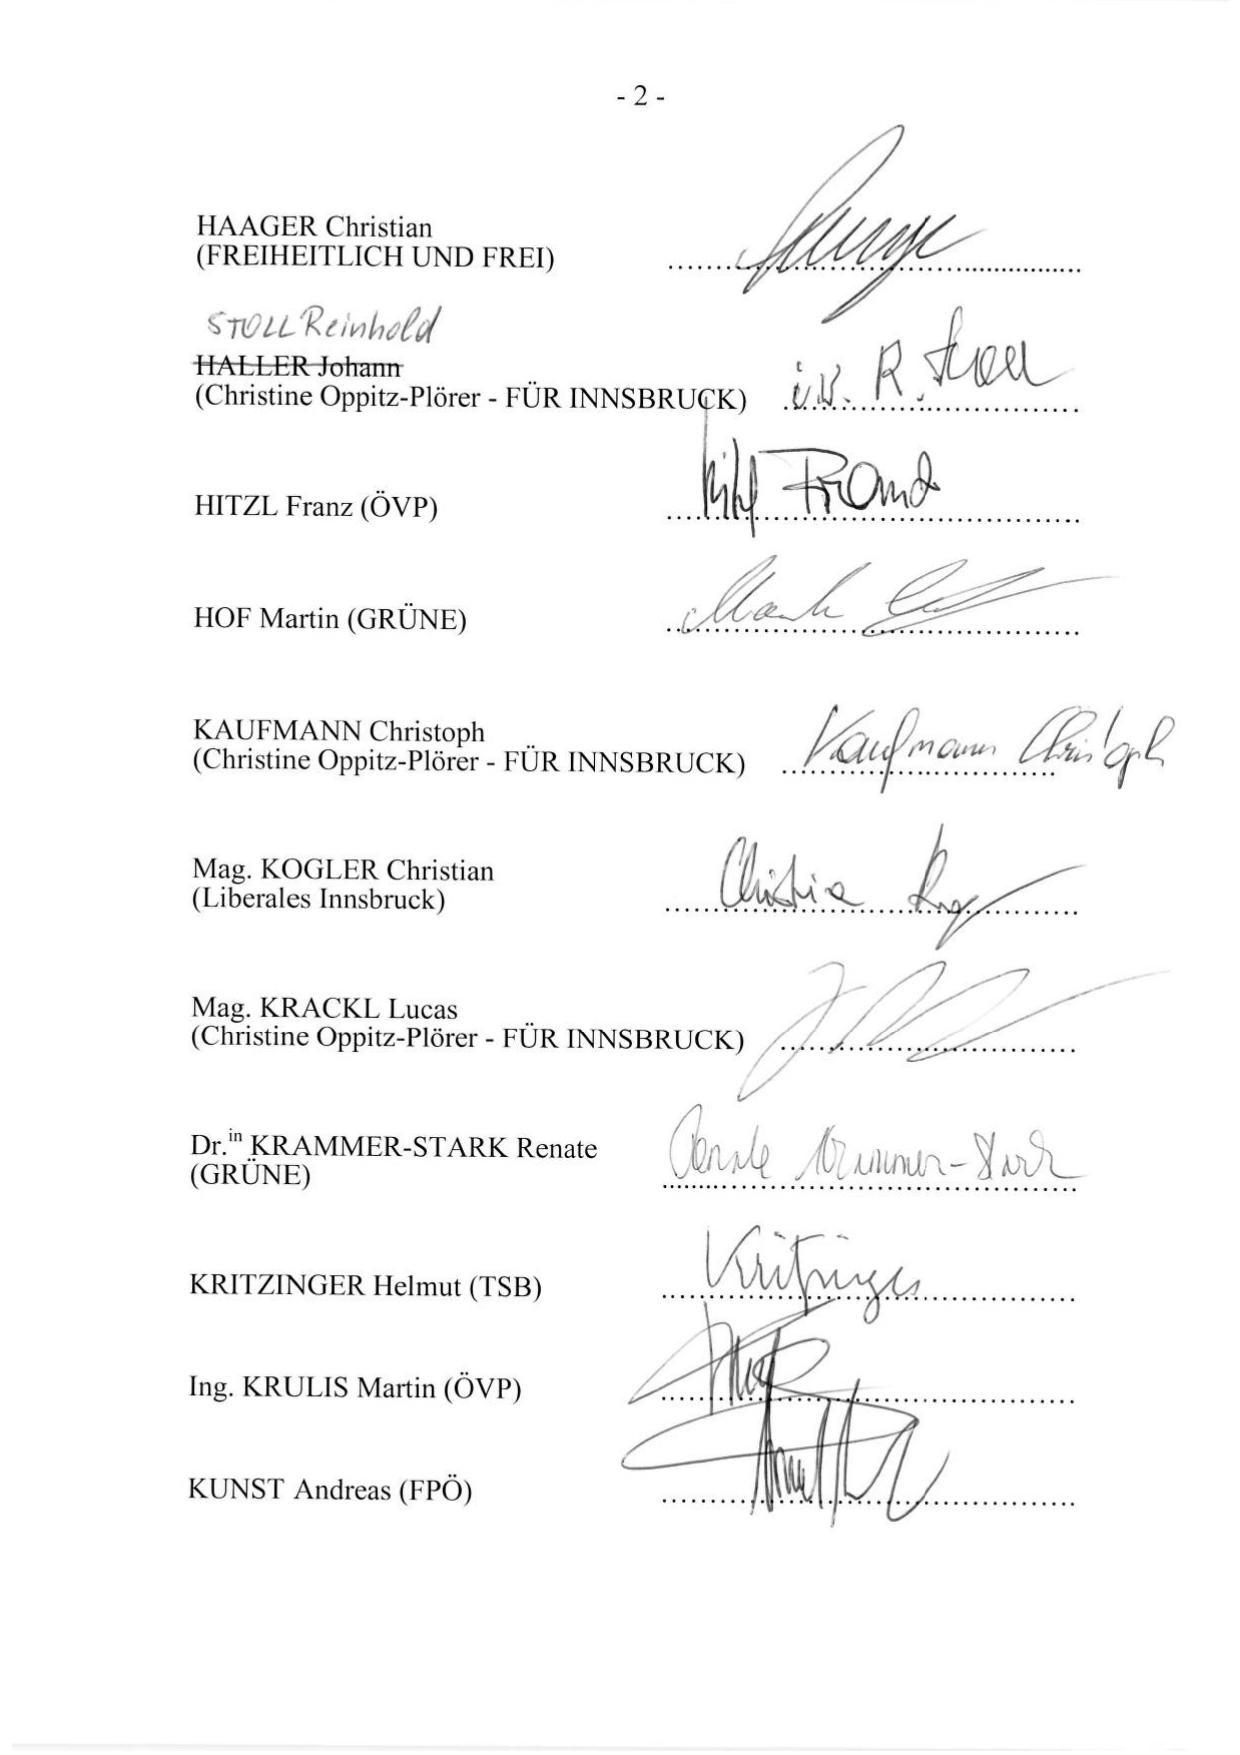 - 2 -
HAAGER Christian
(FREIHEITLICH UND FREI)
STOLL Reinhold
HALLER Johann
(Christine Oppitz-Plörer - FÜR INNSBRUCK)
i.V. R. Stoll
HITZL Franz (ÖVP)
Hitzl Franz
HOF Martin (GRÜNE)
KAUFMANN Christoph
(Christine Oppitz-Plörer - FÜR INNSBRUCK)
Kaufmann Christoph
Mag. KOGLER Christian
(Liberales Innsbruck)
Mag. KRACKL Lucas
(Christine Oppitz-Plörer - FÜR INNSBRUCK)
Dr.in KRAMMER-STARK Renate
(GRÜNE)
Renate Krammer-Stark
KRITZINGER Helmut (TSB)
Kritzinger
Ing. KRULIS Martin (ÖVP)
KUNST Andreas (FPÖ)